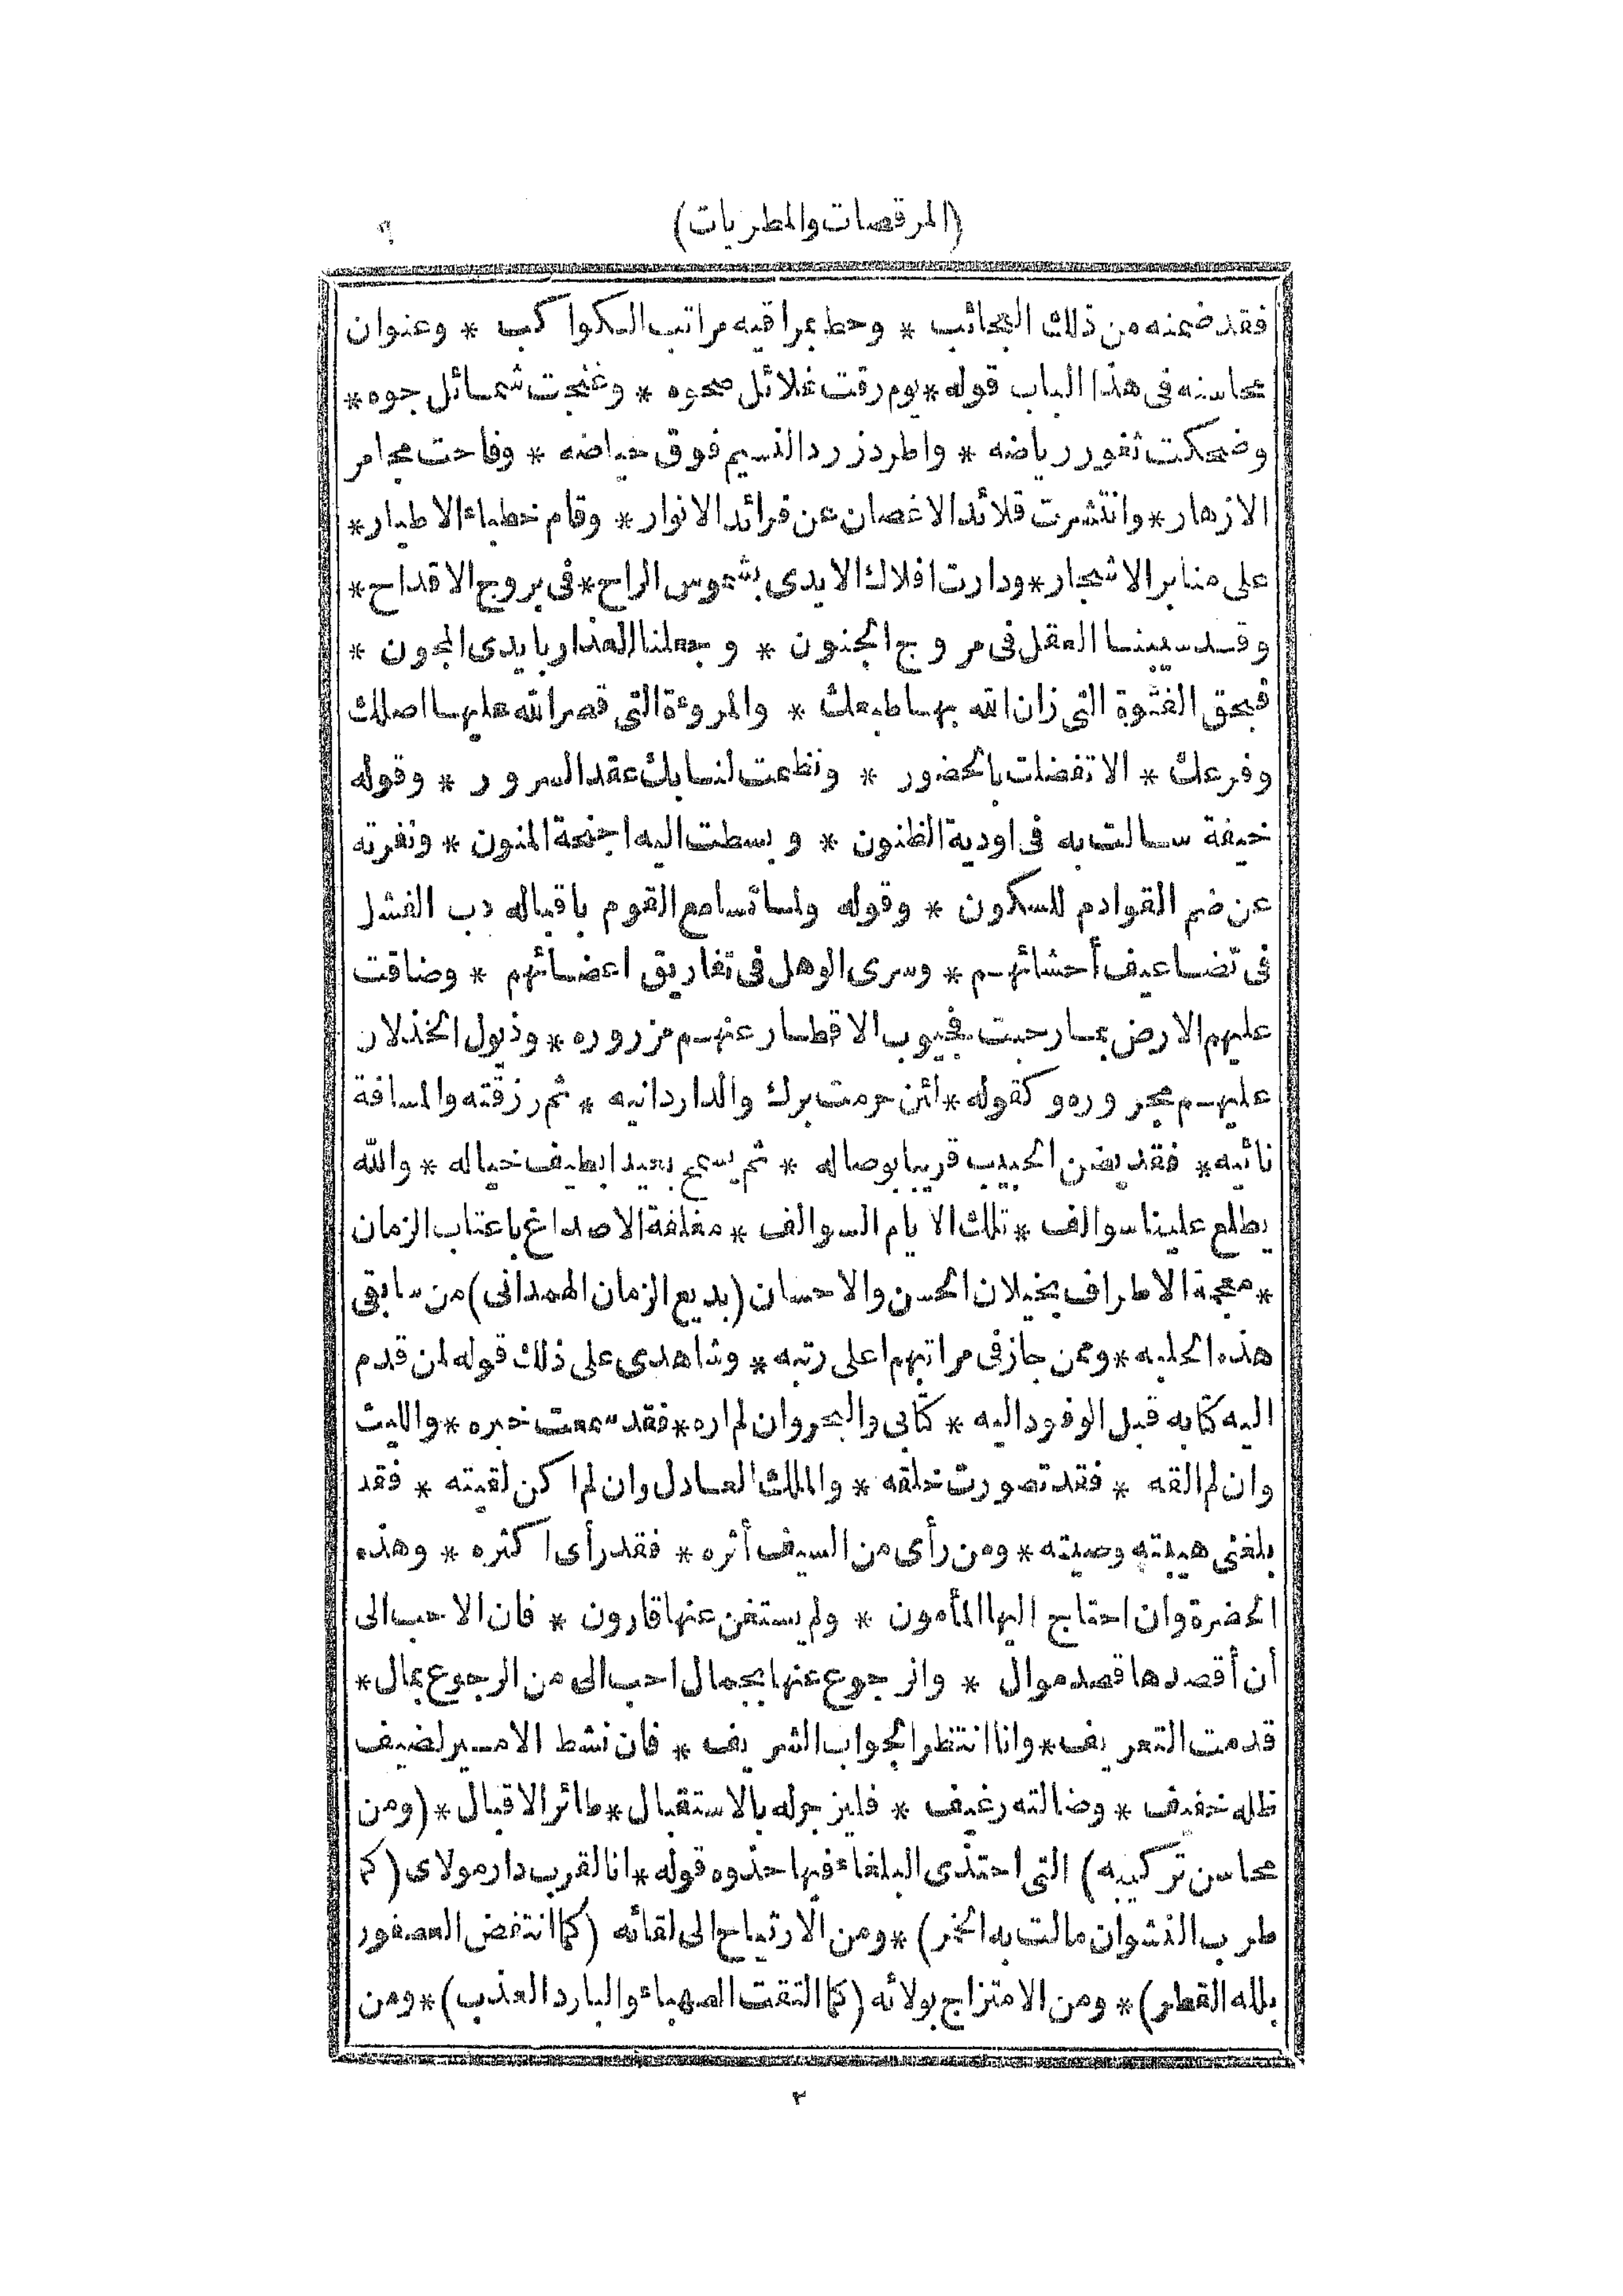 (المرقصات والمطربات)
فقد ضمنه من ذلك العجائب * وحط بمراقيه مراتب الكواكب * وعنوان
محاسنه فى هذا الباب قوله * يوم رقت غلائل صحوه * وغنجت شمائل جوه *
وضحكت ثغور رياضه * واطرد زرد النسيم فوق حياضه * وفاحت مجامر
الازهار * وانتثرت قلائد الاغصان عن فرائد الانوار * وقام خطباء الاطيار *
على منابر الاشجار * ودارت افلاك الايدى بشموس الراح * فى بروج الاقداح *
وقد سيبنا العقل فى مروج الجنون * وجعلنا العذار بايدى المجون *
فبحق الفتوة التى زان الله بها طبعك * والمروءة التى قصر الله عليها اصلك
وفرعك * الا تفضلت بالحضور * ونظمت لنا بك عقد السرور * وقوله
خيفة سالت به فى اودية الظنون * وبسطت اليه اجنحة المنون * ونفرته
عن ضم القوادم للسكون * وقوله ولما تسامع القوم باقباله دب الفشل
فى تضاعيف أحشائهم * وسرى الوهل فى تفاريق اعضائهم * وضاقت
عليهم الارض بما رحبت فجيوب الاقطار عنهم مزروره * وذيول الخذلان
عليهم مجروره وكقوله * لئن حرمت برك والدار دانيه * ثم رزقته والمسافة
نائيه * فقد يضن الحبيب قريبا بوصاله * ثم يسمح بعيدا بطيف خياله * والله
يطلع علينا سوالف * تلك الايام السوالف * مغلفة الاصداغ باعتاب الزمان
* معجمة الاطراف بخيلان الحسن والاحسان (بديع الزمان الهمدانى) من سابقى
هذه الحلبه * وممن حاز فى مراتبهم اعلى رتبه * وشاهدى على ذلك قوله لمن قدم
اليه كتابه قبل الوفود اليه * كتابى والبحر وان لم اره * فقد سمعت خبره * والليث
وان لم القه * فقد تصورت خلقه * والملك العادل وان لم اكن لقيته * فقد
بلغنى هيبته وصيته * ومن رأى من السيف أثره * فقد رأى اكثره * وهذه
الحضرة وان احتاج اليها المأمون * ولم يستغن عنها قارون * فان الاحب الى
أن أقصدها قصد موال * والرجوع عنها بجمال احب الى من الرجوع بمال *
قدمت التعريف * وانا انتظر الجواب الشريف * فان نشط الامير لضيف
ظله خفيف * وضالته رغيف * فليزجر له بالاستقبال * طائر الاقبال * (ومن
محاسن تركيبه) التى احتذى البلغاء فيها حذوه قوله * انا لقرب دار مولاى (كما
طرب النشوان مالت به الخمر) * ومن الارتياح الى لقائه (كما انتفض العصفور
بلله القطر) * ومن الامتزاج بولائه (كما التقت الصهباء والبارد العذب) * ومن
٢